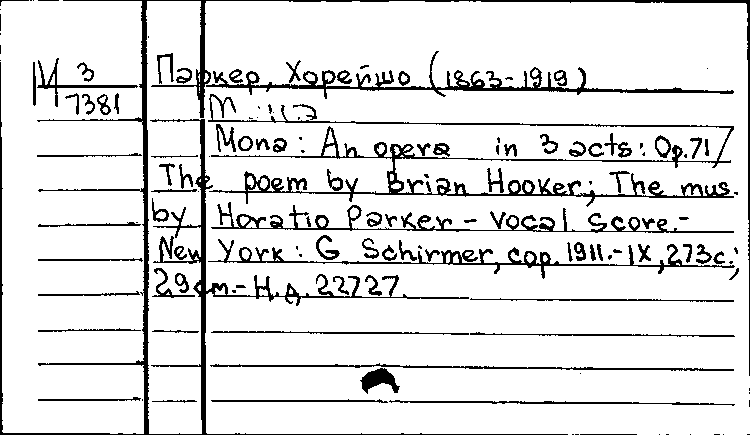 М 3 Паркер, Хорейшо (1863-1919)
7381
Mona: An opera in 3 acts: Op.71/
The poem by Brian Hooker; The mus.
by Horatio Parker - vocal score.-
New York: G Schirmer, cop. 1911.-IX, 273c.;
29cm.- Н.д. 22727.